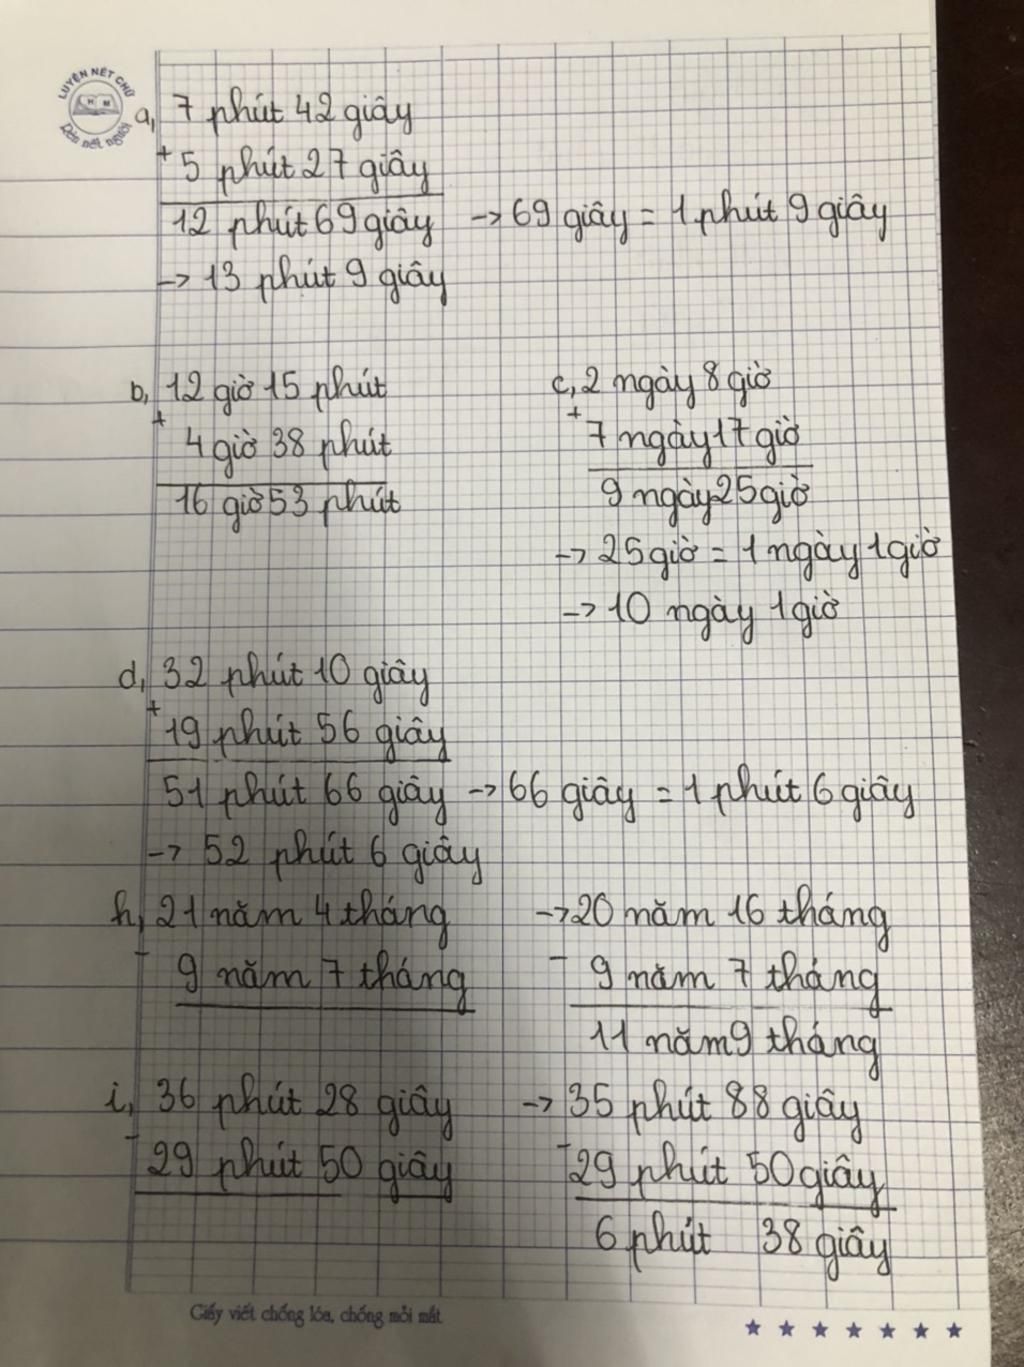 LUYỆN NÉT CHỮ
H M
Rèn nết người
a, 7 phút 42 giây
+
5 phút 27 giây
12 phút 69 giây → 69 giây = 1 phút 9 giây
→ 13 phút 9 giây
b, 12 giờ 15 phút
+
4 giờ 38 phút
16 giờ 53 phút
c, 2 ngày 8 giờ
+
7 ngày 17 giờ
9 ngày 25 giờ
→ 25 giờ = 1 ngày 1 giờ
→ 10 ngày 1 giờ
d, 32 phút 10 giây
+
19 phút 56 giây
51 phút 66 giây → 66 giây = 1 phút 6 giây
→ 52 phút 6 giây
h, 21 năm 4 tháng → 20 năm 16 tháng
- 9 năm 7 tháng - 9 năm 7 tháng
11 năm 9 tháng
i, 36 phút 28 giây → 35 phút 88 giây
- 29 phút 50 giây - 29 phút 50 giây
6 phút 38 giây
Giấy viết chống lóa, chống mỏi mắt